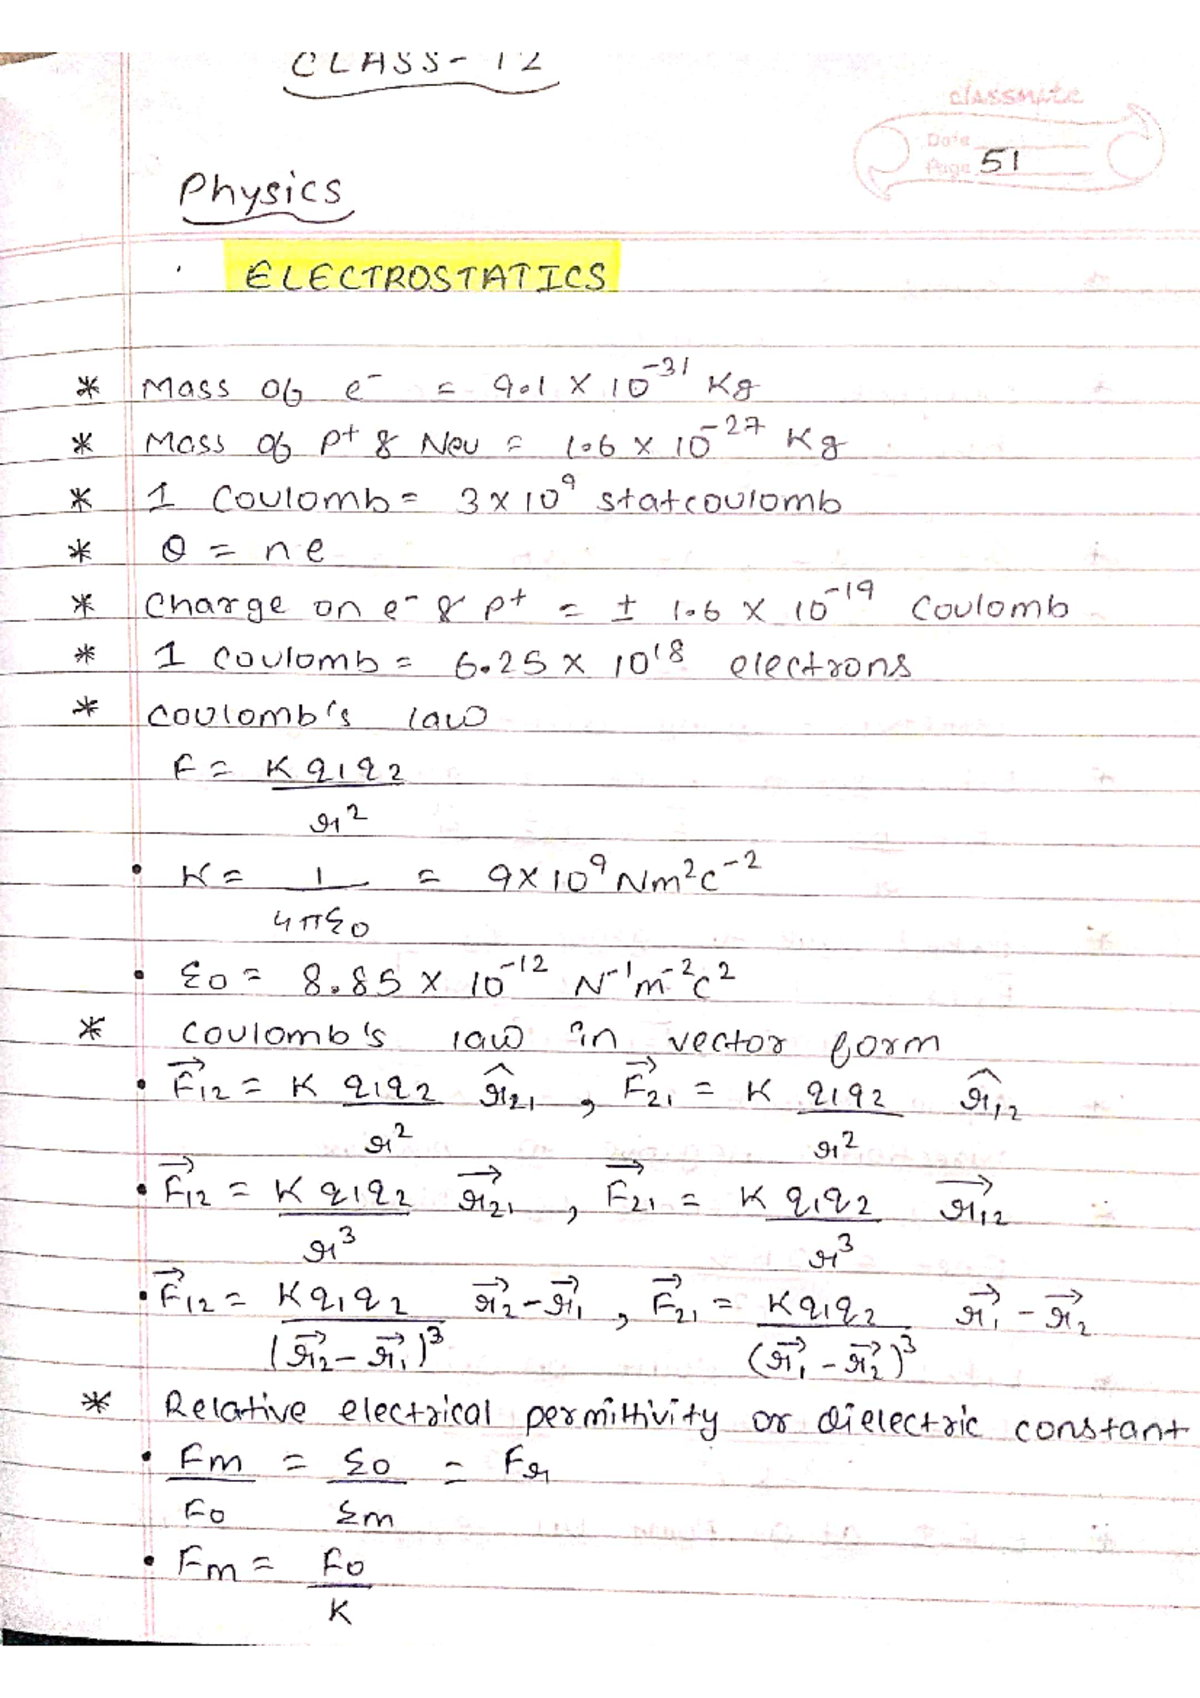 CLASS-12
classmate
Date
Page 51
Physics
ELECTROSTATICS
* Mass of e⁻ = 9.1 × 10⁻³¹ Kg
* Mass of p⁺ & Neu = 1.6 × 10⁻²⁷ Kg
* 1 Coulomb = 3 × 10⁹ statcoulomb
* Q = ne
* Charge on e⁻ & p⁺ = ± 1.6 × 10⁻¹⁹ Coulomb
* 1 Coulomb = 6.25 × 10¹⁸ electrons
* Coulomb's law
F = K q₁q₂ / r²
• K = 1 / 4πε₀ = 9×10⁹ Nm²C⁻²
• ε₀ = 8.85 × 10⁻¹² N⁻¹m⁻²C²
* Coulomb's law in vector form
• F⃗₁₂ = K q₁q₂ / r² r̂₂₁ , F⃗₂₁ = K q₁q₂ / r² r̂₁₂
• F⃗₁₂ = K q₁q₂ / r³ r⃗₂₁ , F⃗₂₁ = K q₁q₂ / r³ r⃗₁₂
• F⃗₁₂ = Kq₁q₂ / (r⃗₂ - r⃗₁)³ r⃗₂ - r⃗₁ , F⃗₂₁ = Kq₁q₂ / (r⃗₁ - r⃗₂)³ r⃗₁ - r⃗₂
* Relative electrical permittivity or dielectric constant
• Fm / F₀ = ε₀ / εm = Fr
• Fm = F₀ / K